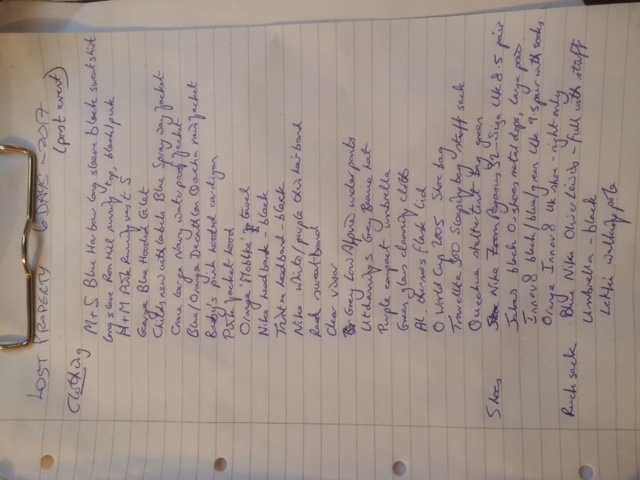 LOST PROPERTY 6 DAYS - 2017
(post event)
Clothing
M+S Blue Harbour long sleeve black sweatshirt
Long sleeve Ron Hill running top, black/pink
H+M Pink Running vest S
George Blue Hooded Gilet
Childs new with labels Blue Spray way Jacket
Crane large Navy waterproof Jacket
Blue/Orange Decathlon Quechua rain jacket
Baby's pink hooded cardigan
Pink jacket hood
Orange towel
Nike headband - black
headband - black
Nike white/purple thin hair band
Red sweatband
Clear visor
Grey Lowe Alpine underpants
Ut Grey Beanie hat
Purple compact umbrella
Green glass cleaning cloth
Al. thermos flask lid
O World Cup 2005 Shoe bag
Travelite 300 Sleeping bag stuff sack
Quechua shelter tent bag green
Shoes Nike Zoom Pegasus 32 - Size UK 8.5 pair
black O-shoes metal dobs, large pair
Innov8 black/blue/green UK 9.5 pair with socks
Orange Innov8 UK shoe - right only
Ruck sack Nike Olive/ - full with stuff
Umbrella - black
Lekki walking pole